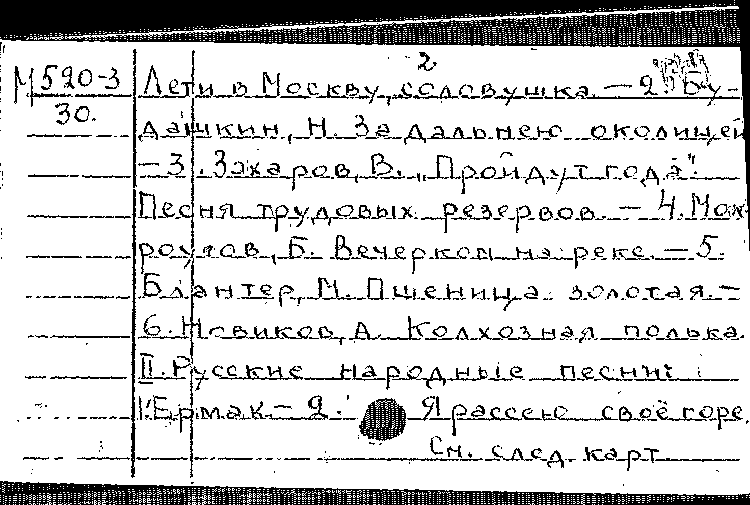 2
М 520-3 Лети в Москву, соловушка. – 2. Бу-
30. дашкин, Н. За дальнею околицей
– 3. Захаров, В. „Пройдут года".
Песня трудовых резервов. – 4. Мок-
роусов, Б. Вечерком на реке. – 5.
Блантер, М. Пшеница золотая. –
6. Новиков, А. Колхозная полька.
II. Русские народные песни:
1. Ермак – 2. Я рассею своё горе.
См. след. карт.